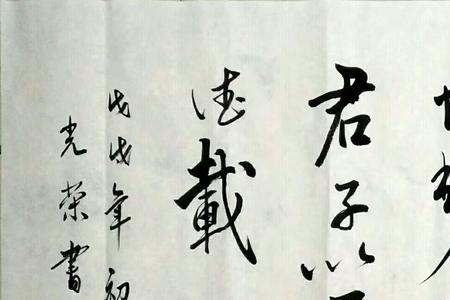 君子以
德載
戊戌年初
光榮書